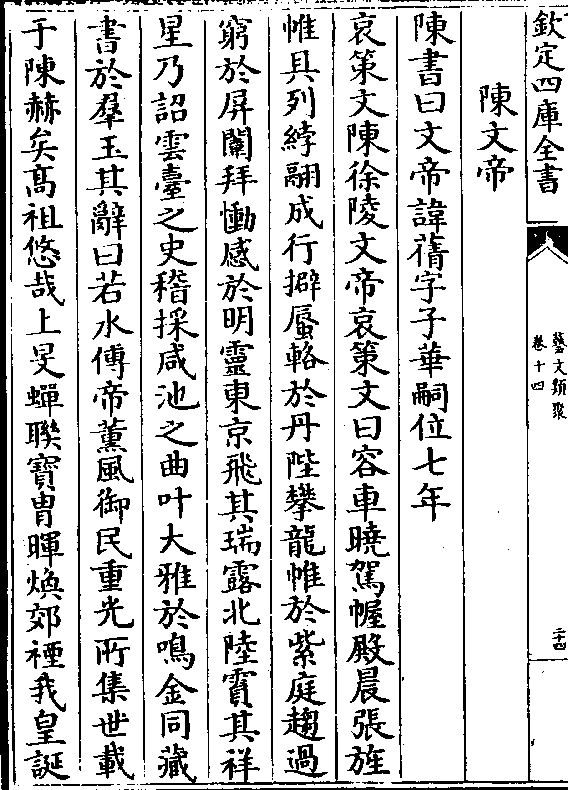 欽定四庫全書
藝文類聚
卷十四
二十四
陳文帝
陳書曰文帝諱蒨字子華嗣位七年
哀策文陳徐陵文帝哀策文曰容車曉駕幄殿晨張旌
帷具列綍翮成行擗蜃輅於丹陛攀龍帷於紫庭趨過
窮於屏闈拜慟感於明靈東京飛其瑞露北陸賁其祥
星乃詔雲臺之史稽採咸池之曲叶大雅於鳴金同藏
書於羣玉其辭曰若水傅帝薫風御民重光所集世載
于陳赫矣髙祖悠哉上旻蟬聯寶胄暉煥郊禋我皇誕